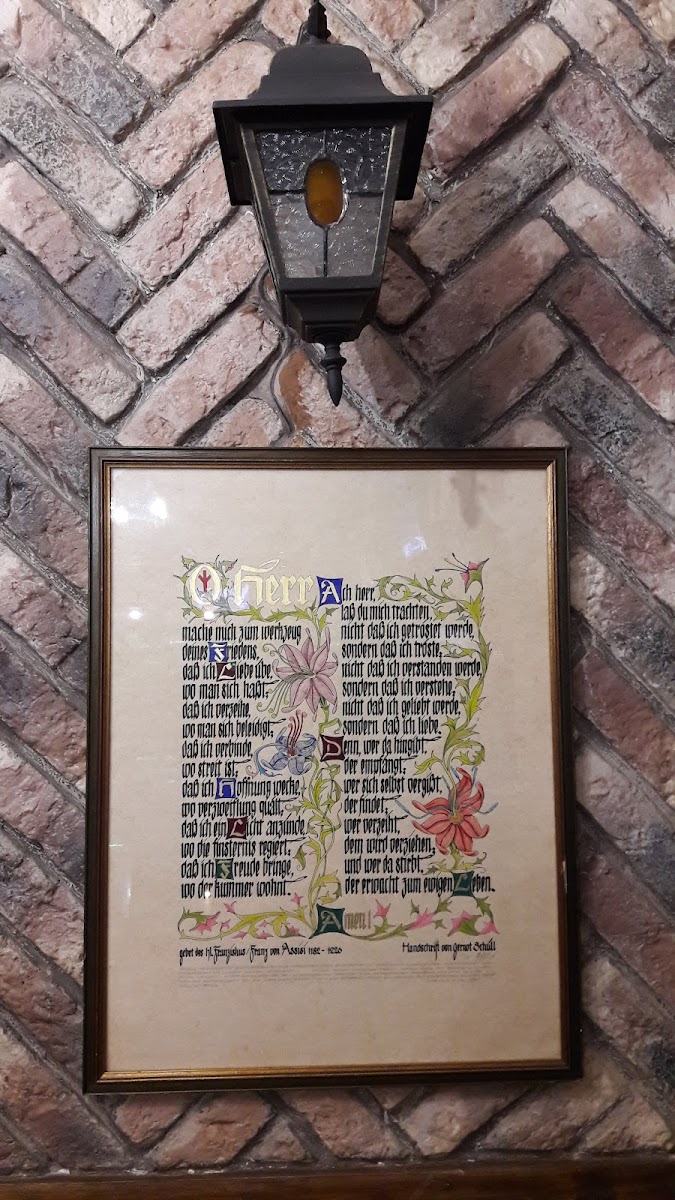 O Herr
mache mich zum werkzeug
deines Friedens,
daß ich Liebe übe,
wo man sich haßt;
daß ich verzeihe,
wo man sich beleidigt;
daß ich verbinde,
wo streit ist;
daß ich Hoffnung wecke,
wo verzweiflung quält;
daß ich ein Licht anzünde,
wo die finsternis regiert;
daß ich Freude bringe,
wo der kummer wohnt.
Ach herr,
laß du mich trachten,
nicht daß ich getröstet werde,
sondern daß ich tröste,
nicht daß ich verstanden werde,
sondern daß ich verstehe,
nicht daß ich geliebt werde,
sondern daß ich liebe.
Denn, wer da hingibt,
der empfängt;
wer sich selbst vergißt,
der findet;
wer verzeiht,
dem wird verziehen;
und wer da stirbt,
der erwacht zum ewigen Leben.
Amen!
gebet des hl. Franziskus / Franz von Assisi 1182 - 1226
Handschrift von Gernot Schüll